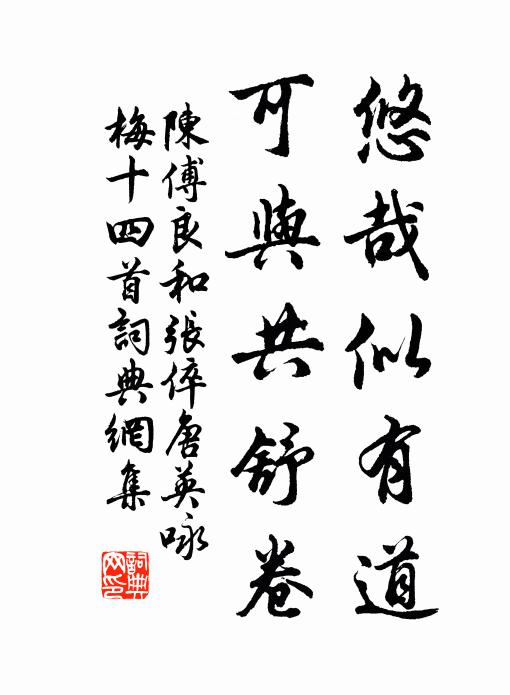 悠哉似有道
可與共舒卷
陳傅良和張倅唐英咏
梅十四首詞典網集
詞典
网印